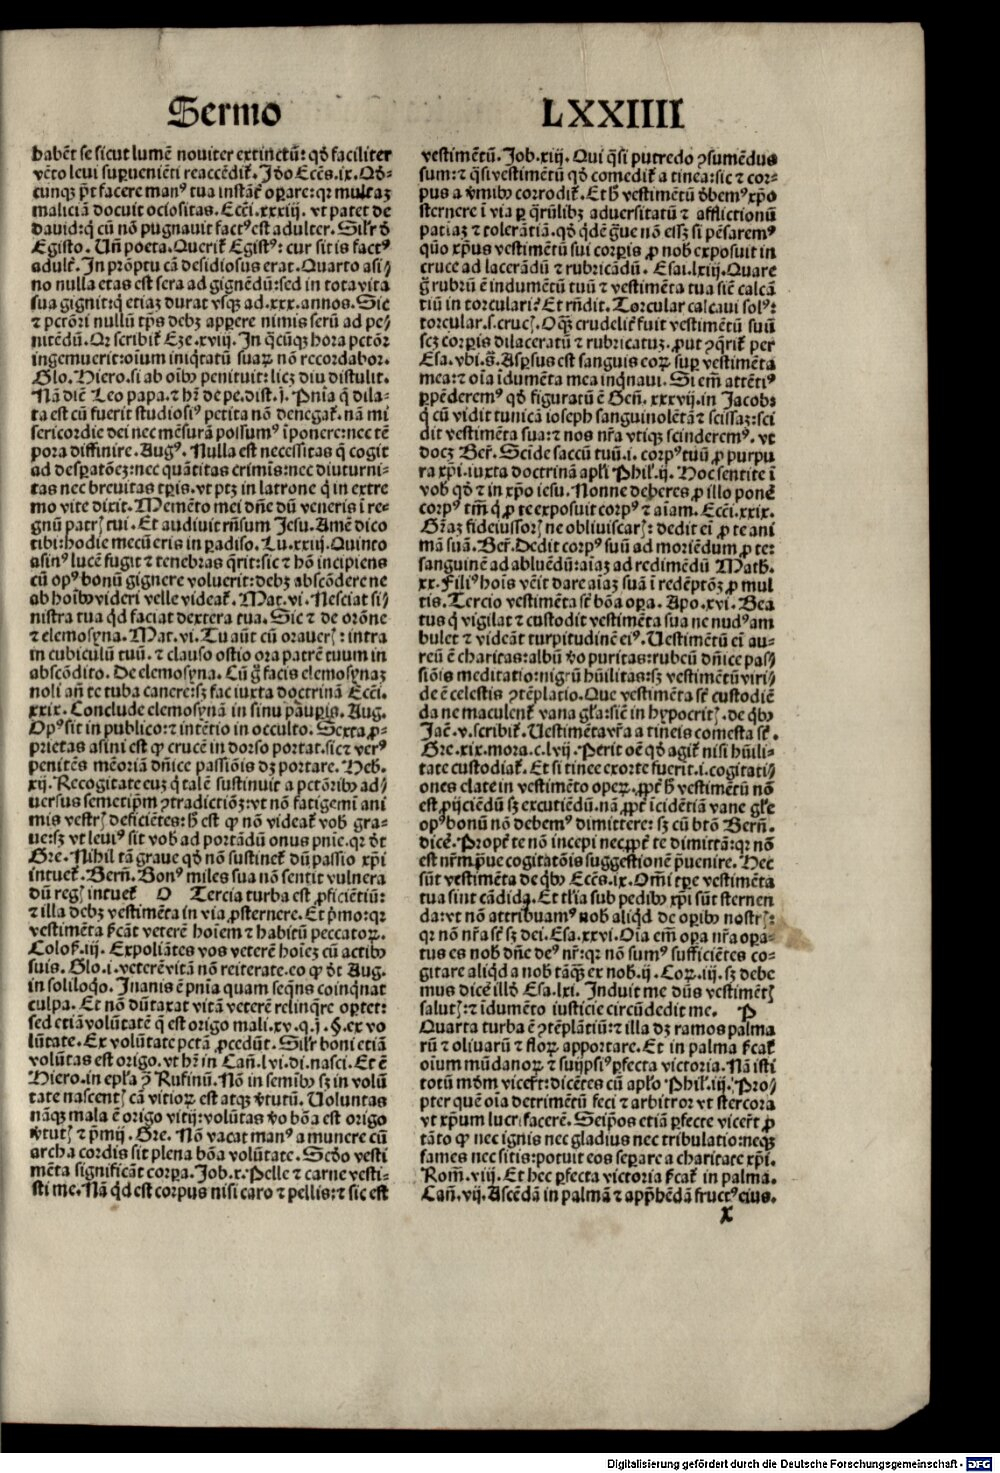 Sermo LXXIIII
habēt se sicut lumē noviter extinctū: qd̄ faciliter
vēto levi supuenīēti reaccēdit̄. Jdo Ecc̄s.ix. Qd̄-
cunqꝫ pt̄ facere manꝰ tua instāt̄ opare: qr multaꝫ
maliciā docuit ociositas. Ecci.xxxiij. vt patet de
david: q̄ cū nō pugnauit factꝰ est adulter. Silr d̄
Egisto. Uñ poeta. Querit̄ Egistꝰ: cur sit is factꝰ
adult̄. In prōptu cā desidiosus erat. Quarto asi/
no nulla etas est sera ad gignēdū: sed in tota vita
sua gignit: q̄ etiaꝫ durat vsqꝫ ad.xxx.annos. Sic
⁊ pctōri nullū tp̄s debꝫ apꝑere nimis serū ad pe/
nitēdū. Qr scribit̄ Eze.xviij. In q̄cūqꝫ hora pctōr
ingemuerit: oīum iniq̄tatū suaꝝ nō recordabor.
Glo. Hiero. si ab oībꝰ penituit: licꝫ diu distulit.
Nā diē Leo papa. ⁊ hr̄ de pe.dist.j. Pn̄ia q̄ dila-
ta est cū fuerit studiosiꝰ petita nō denegat̄. nā mi
sericordie dei nec mēsurā possumꝰ īponere: nec tē
pora diffinire. Augꝰ. Nulla est necessitas q̄ cogit
ad desꝑatōeꝫ: nec quātitas crimīs: nec diuturni-
tas nec brevitas tp̄ris. vt ptꝫ in latrone q̄ in extre
mo vite dixit. Memēto mei dn̄e dū veneris ī re-
gnū patrꝭ tui. Et audiuit rn̄sum Jesu. Amē dico
tibi: hodie mecū eris in ꝑadiso. Lu.xxiij. Quinto
asinꝰ lucē fugit ⁊ tenebras q̄rit: sic ⁊ hō incipiens
cū opꝰ bonū gignere voluerit: debꝫ abscōdere ne
ab hoībꝰ videri velle videat̄. Mat.vi. Nesciat si/
nistra tua qd̄ faciat dextera tua. Sic ⁊ de orōne
⁊ elemosyna. Mat.vi. Tu aūt cū orauerꝭ: intra
in cubiculū tuū. ⁊ clauso ostio ora patrē tuum in
abscōdito. De elemosyna. Cū g̊ facis elemosynaꝫ
noli añ te tuba canere: sꝫ fac iuxta doctrinā Ecci.
xxix. Conclude elemosynā in sinu pauꝑis. Aug.
Opꝰ sit in publico: ⁊ intētio in occulto. Sexta ꝓ-
prietas asini est qꝫ crucē in dorso portat. sic ⁊ verꝰ
penitēs mēoriā dn̄ice passiōis dꝫ portare. Heb.
xij. Recogitate euꝫ q̄ talē sustinuit a pctōribꝰ ad/
uersus semetip̄m ꝯtradictiōꝫ: vt nō fatigemī ani
mis vestrꝭ deficiētes: h̄ est qꝫ nō videat̄ vob gra-
ue: sꝫ vt leuiꝰ sit vob ad portādū onus pn̄ie. qr dt̄
Gre. Nihil tā graue qd̄ nō sustinet̄ dū passio xp̄i
intuet̄. Bern̄. Bonꝰ miles sua nō sentit vulnera
dū regꝭ intuet̄ O Tercia turba est ꝓficiētiū:
⁊ illa debꝫ vestimēta in via ꝓsternere. Et p̄mo: qr
vestimēta f̄cāt veterē hoiem ⁊ habitū peccatoꝝ.
Colos.iij. Expoliātes vos veterē hoieꝫ cū actibꝰ
suis. Glo.i. veterē vitā nō reiterate. eo qꝫ dt̄ Aug.
in soliloqo. Inanis ē pn̄ia quam seqn̄s coinq̄nat
culpa. Et nō dūtaxat vitā veterē relinq̄re oꝑtet:
sed etiā volūtatē q̄ est origo mali.xv.q.j.§.ex vo
lūtate. Ex volūtate pctā ꝓcedūt. Silr boni etiā
volūtas est origo. vt hr̄ in Cañ.lvi.di.nasci. Et ē
Hiero. in epl̄a ꝯ̄ Rufinū. Nō in semībꝰ sꝫ in volū
tate nascentꝭ cā vitioꝝ est atqꝫ v̄tutū. Uoluntas
nāqꝫ mala ē origo vitij: volūtas v̄o bōa est origo
v̄tutꝭ ⁊ p̄mij. Gre. Nō vacat manꝰ a munere cū
archa cordis sit plena bōa volūtate. Scd̄o vesti
mēta significāt corꝑa. Job.x. Pelle ⁊ carne vesti-
sti me. Nā qd̄ est corpus nisi caro ⁊ pellis: ⁊ sic est
vestimētū. Job.xiij. Qui q̄si putredo ꝯsumēdus
sum: ⁊ q̄si vestimētū qd̄ comedit̄ a tinea: sic ⁊ cor-
pus a v̄mibꝰ corrodit̄. Et h̄ vestimētū d̄bemꝰ xp̄o
sternere ī via ꝑ q̄rūlibꝫ aduersitatū ⁊ afflictionū
patiaꝫ ⁊ tolerātiā. qd̄ qdē g̊ue nō essꝫ si pēsaremꝰ
quō xp̄us vestimētū sui corꝑis ꝓ nob exposuit in
cruce ad lacerādū ⁊ rubricādū. Esai.lxiij. Quare
g̊ rubrū ē indumētū tuū ⁊ vestimēta tua siē calcā
tiū in torculari: Et rn̄dit. Torcular calcaui solꝰ:
torcular.s.crucꝭ. O qꝫ crudelit̄ fuit vestimētū suū
scꝫ corꝑis dilaceratū ⁊ rubricatuꝫ. ꝓut ꝯq̄rit̄ per
Esa. vbi.s̄. Asꝑsus est sanguis eoꝝ suꝑ vestimēta
mea: ⁊ oīa īdumēta mea inq̄naui. Si em̄ attētiꝰ
ꝑpēderemꝰ qd̄ figuratū ē Gen̄.xxxvij. in Jacob:
q̄ cū vidit tunicā ioseph sanguinolētā ⁊ scissaꝫ: sci
dit vestimēta sua: ⁊ nos nr̄a vtiqꝫ scinderemꝰ. vt
docꝫ Ber̄. Scide saccū tuū.i.corpꝰ tuū ꝓ purpu
ra xp̄i. iuxta doctrinā apl̄i Phil̄.ij. Hoc sentite ī
vob qd̄ ⁊ in xp̄o iesu. Nonne deberes ꝓ illo ponē
corpꝰ tm̄ q̄ ꝓ te exposuit corpꝰ ⁊ aīam. Ecci.xxix.
Gr̄aꝫ fideiussorꝭ ne obliuiscarꝭ: dedit ei ꝓ te ani
mā suā. Ber̄. Dedit corpꝰ suū ad moriēdum ꝓ te:
sanguinē ad abluēdū: aīaꝫ ad redimēdū Math̄.
xx. Filiꝰ hoīs vēit dare aīaꝫ suā ī redēptōꝫ ꝓ mul
tis. Tercio vestimēta sc̄t bōa oꝑa. Apo.xvi. Bea
tus q̄ vigilat ⁊ custodit vestimēta sua ne nudꝰ am
bulet ⁊ videāt turpitudinē eiꝰ. Uestimētū ei au-
reū ē charitas: albū v̄o puritas: rubeū dn̄ice pas/
siōis meditatio: nigrū hūilitas: sꝫ vestimētū viri/
de ē celestis ꝯtēplatio. Que vestimēta sc̄t custodiē
da ne maculent̄ vana gl̄a: siē in hypocritꝭ. de q̄bꝰ
Jac̄.v.scribit̄. Uestimēta vr̄a a tineis comesta sc̄t.
Gre.xix.mora.c.lvij. Perit oē qd̄ agit̄ nisi hūili-
tate custodiat̄. Et si tinee exorte fuerīt.i.cogitati/
ones elate in vestimēto operꝝ. ꝓpt̄ h̄ vestimētū nō
est ꝓijciēdū sꝫ excutiēdū. nā ꝓpt̄ īcidētiā vane gl̄e
opꝰ bonū nō debemꝰ dimittere: sꝫ cū bt̄o Bern̄.
dicē. Propt̄ te nō incepi nec ꝓpt̄ te dimittā: qr nō
est nr̄m p̄ue cogitatōis suggestionē p̄uenire. Hec
sūt vestimēta de q̄bꝰ Ecc̄s.ix. Om̄i tꝑe vestimēta
tua sint cādida. Et tl̄ia sub pedibꝰ xp̄i sūt sternen
da: vt nō attribuamꝰ nob aliqd̄ de oꝑibꝰ nostrꝭ:
qr nō nr̄a sc̄t sꝫ dei. Esa.xxvi. Oīa em̄ oꝑa nr̄a oꝑa-
tus es nob dn̄e deꝰ nr̄: qr nō sumꝰ sufficiētes co-
gitare aliqd̄ a nob tāqꝫ ex nob.ij. Coꝝ.iij. sꝫ debe
mus dicē illd̄ Esa.lxi. Induit me dn̄s vestimētꝭ
salutꝭ: ⁊ īdumēto iusticie circūdedit me. P
Quarta turba ē ꝯtēplātiū: ⁊ illa dꝫ ramos palma
rū ⁊ oliuarū ⁊ floꝝ apportare. Et in palma f̄cat̄
oīum mūdanoꝝ ⁊ suijpsiꝰ ꝑfecta victoria. Nā isti
totū mōm vicer̄t: dicētes cū apl̄o Phil̄.iij. Pro/
pter quē oīa detrimētū feci ⁊ arbitror vt stercora
vt xp̄um lucrifacerē. Seip̄os etiā ꝑfecte vicer̄t ꝓ
tāto qꝫ nec ignis nec gladius nec tribulatio: neqꝫ
fames nec sitis: potuit eos seꝑare a charitate xp̄i.
Rom̄.viij. Et hec ꝑfecta victoria f̄cat̄ in palma.
Cañ.vij. Ascēdā in palmā ⁊ appħēdā fructꝰ eius.
x
Digitalisierung gefördert durch die Deutsche Forschungsgemeinschaft - DFG